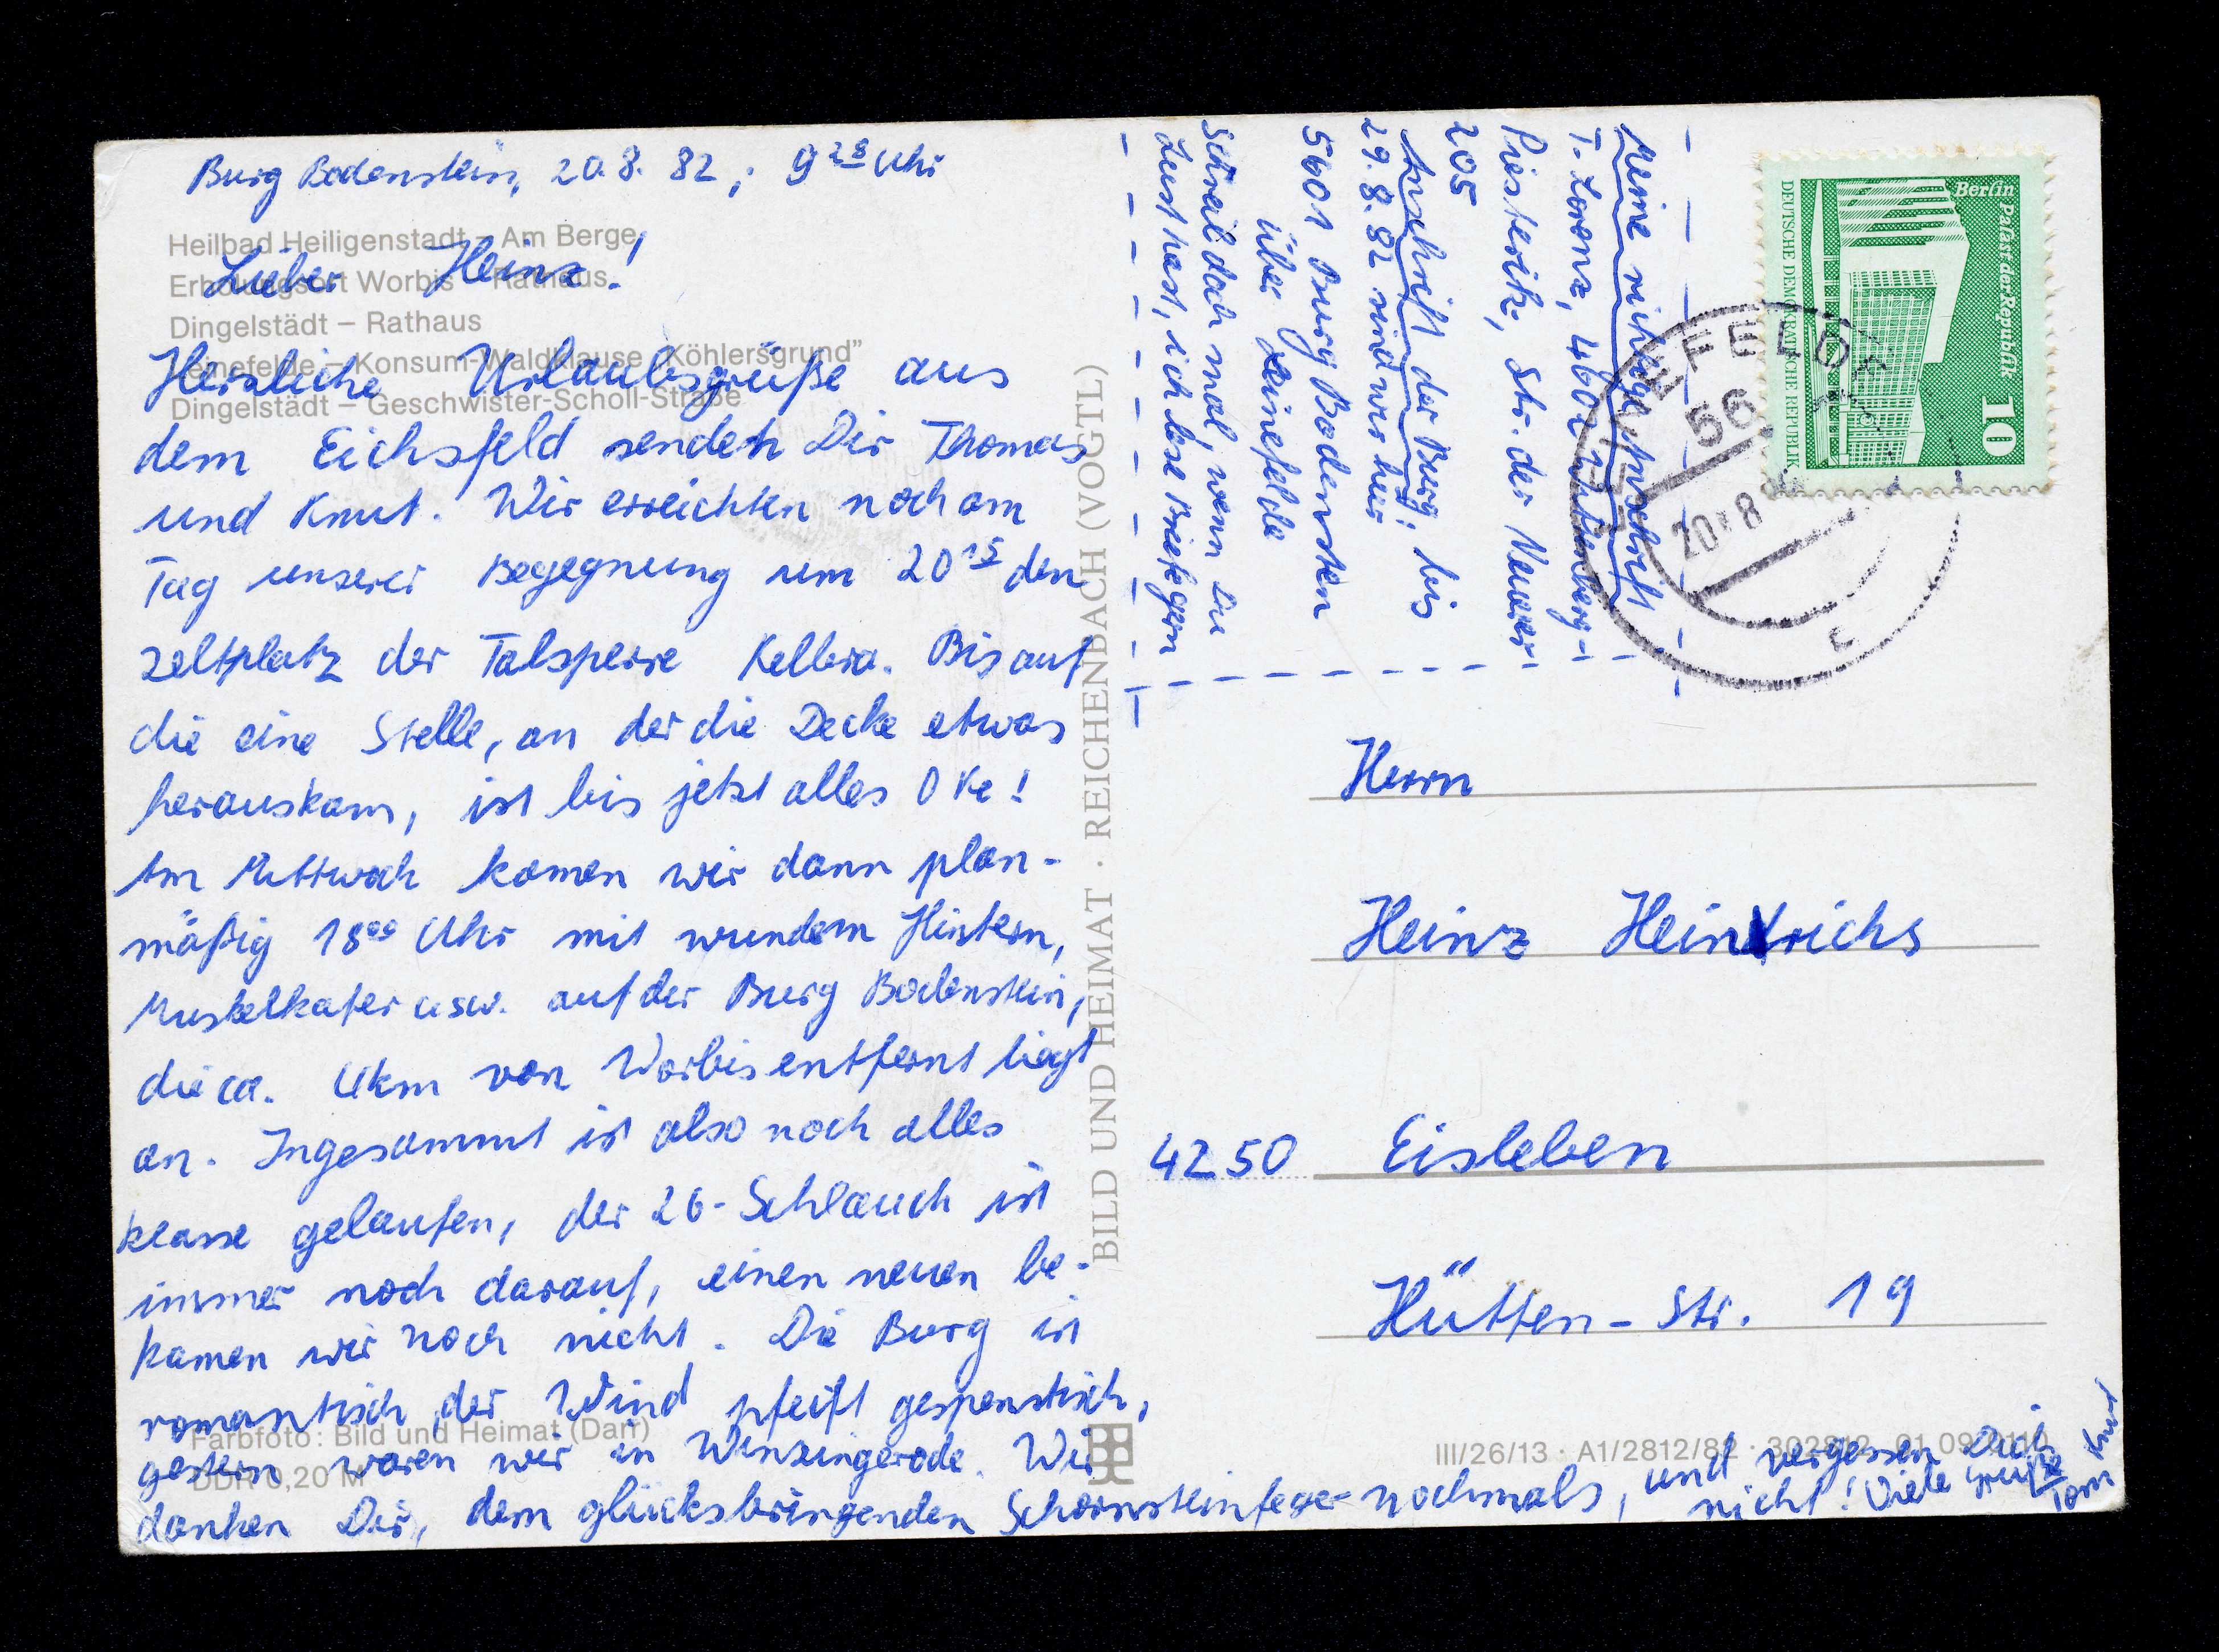 Burg Bodenstein, 20.8.82, 9²⁸ Uhr
Heilbad Heiligenstadt – Am Berge
Erholungsort Worbis – Rathaus
Dingelstädt – Rathaus
Leinefelde – Konsum-Waldklause „Köhlersgrund”
Dingelstädt – Geschwister-Scholl-Straße
Lieber Heinz!
Herzliche Urlaubsgrüße aus
dem Eichsfeld senden Dir Thomas
und Knut. Wir erreichten noch am
Tag unserer Begegnung um 20¹⁵ den
Zeltplatz der Talsperre Kelbra. Bis auf
die eine Stelle, an der die Decke etwas
herauskam, ist bis jetzt alles Oke!
Am Mittwoch kamen wir dann plan-
mäßig 18⁰⁰ Uhr mit wundem Hintern,
Muskelkater usw. auf der Burg Bodenstein,
die ca. 4km von Worbis entfernt liegt
an. Ingesammt ist also noch alles
klasse gelaufen, der 26-Schlauch ist
immer noch darauf, einen neuen be-
kamen wir noch nicht. Die Burg ist
romantisch, der Wind pfeift gespenstisch,
gestern waren wir in Winzingerode. Wir
danken Dir, dem glücksbringenden Schornsteinfeger nochmals, und vergessen Dich
nicht! Viele Grüße
Tom Knut
Farbfoto: Bild und Heimat (Darr)
DDR 0,20 M
BILD UND HEIMAT · REICHENBACH (VOGTL)
Meine richtige Anschrift
T. Lorenz, 4602 Wittenberg-
Piesteritz, Str. der Neuerer
205
Anschrift der Burg; bis
29.8.82 sind wir hier:
5601 Burg Bodenstein
über Leinefelde
Schreib doch mal, wenn Du
Lust hast, ich lese Briefe gern
Berlin
Palast der Republik
10
DEUTSCHE DEMOKRATISCHE REPUBLIK
LEINEFELDE 1
56
20.-8.
c
Herrn
Heinz Heinrichs
4250 Eisleben
Hütten-Str. 19
III/26/13 · A1/2812/82 · 302812 01 09